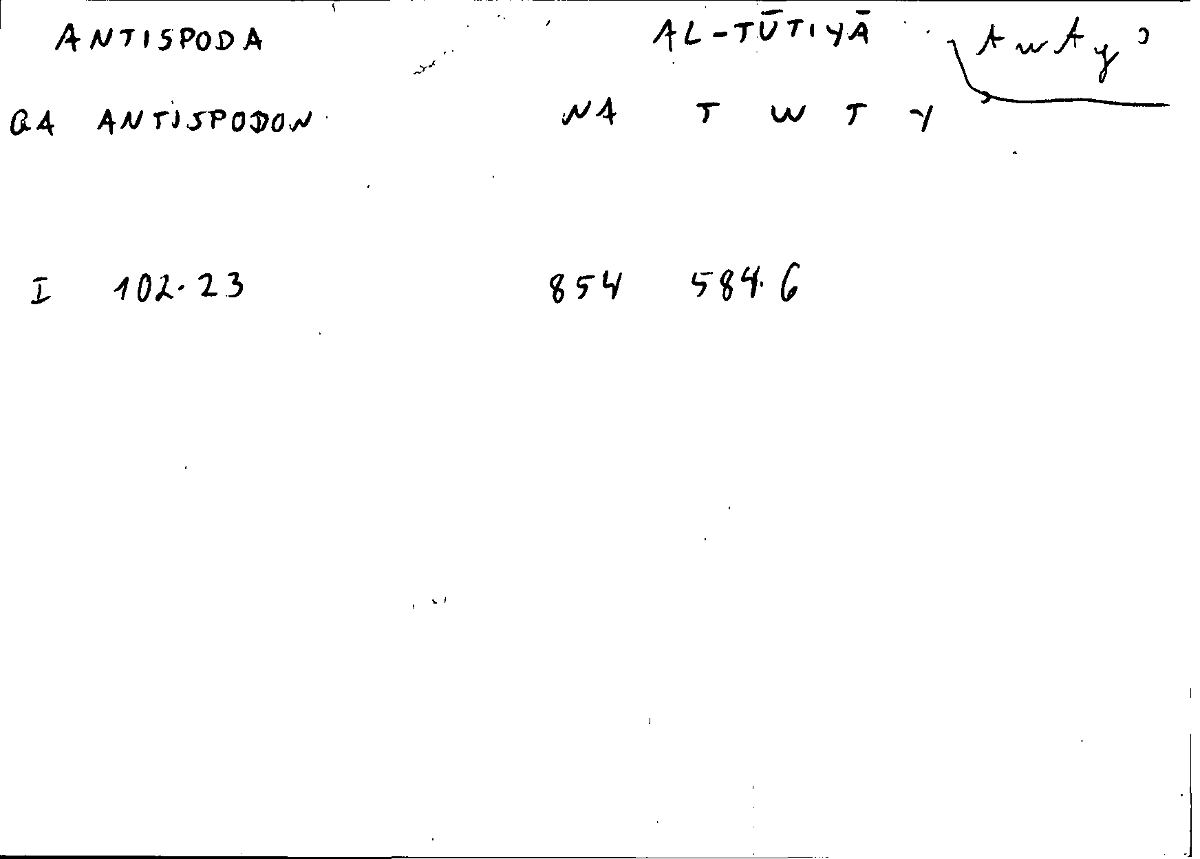 ANTISPODA AL-TŪTIYĀ AwAy
GA ANTISPODON NA T W T Y
I 102.23 854 584.6